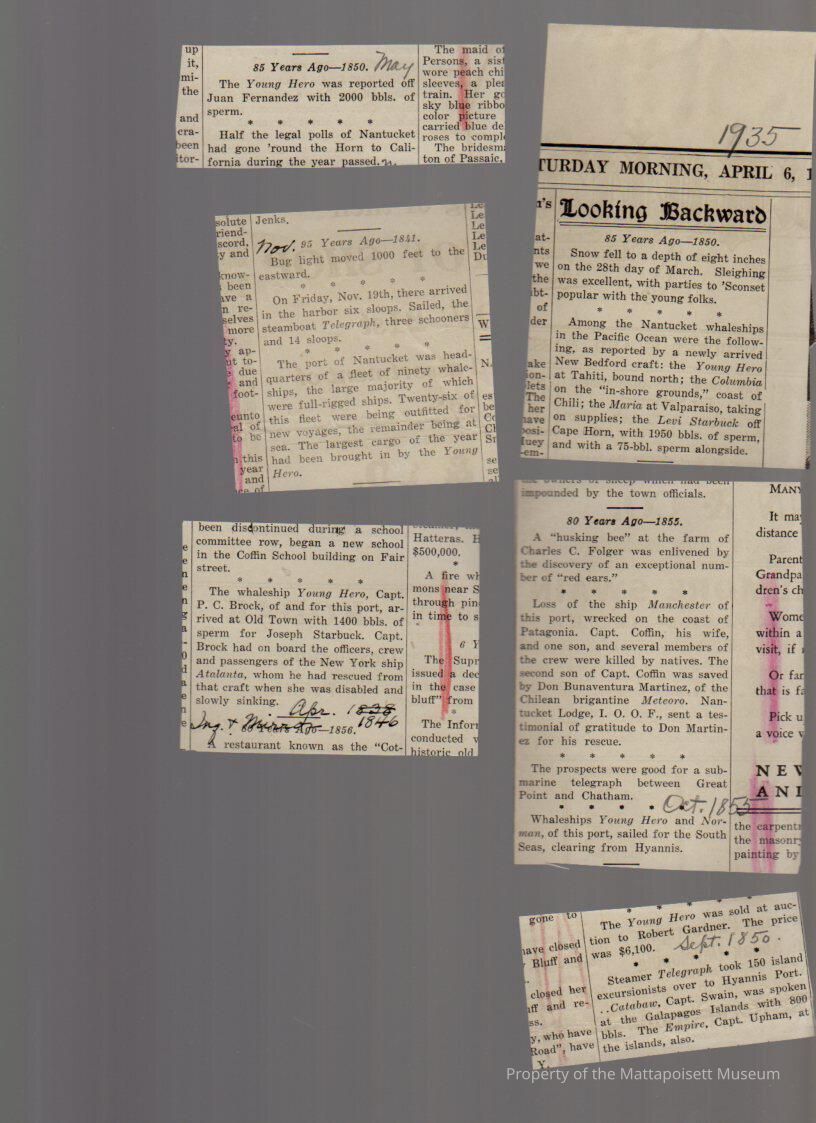 up
it,
mi-
the
and
cra-
been
itor-
85 Years Ago—1850. May
The Young Hero was reported off
Juan Fernandez with 2000 bbls. of
sperm.
* * * * *
Half the legal polls of Nantucket
had gone 'round the Horn to Cali-
fornia during the year passed.
The maid of
Persons, a sist
wore peach chi
sleeves, a plea
train. Her go
sky blue ribbo
color picture
carried blue de
roses to comple
The bridesma
ton of Passaic,
1935
TURDAY MORNING, APRIL 6, 1
Looking Backward
85 Years Ago—1850.
Snow fell to a depth of eight inches
on the 28th day of March. Sleighing
was excellent, with parties to 'Sconset
popular with the young folks.
* * * * *
Among the Nantucket whaleships
in the Pacific Ocean were the follow-
ing, as reported by a newly arrived
New Bedford craft: the Young Hero
at Tahiti, bound north; the Columbia
on the "in-shore grounds," coast of
Chili; the Maria at Valparaiso, taking
on supplies; the Levi Starbuck off
Cape Horn, with 1950 bbls. of sperm,
and with a 75-bbl. sperm alongside.
n's
at-
nts
we
the
bt-
of
der
ake
on-
lets
The
her
have
posi-
luey
-em-
solute
riend-
scord,
y and
know-
been
ave a
n re-
selves
more
ty.
y ap-
ut to-
due
and
foot-
eunto
al of
to be
this
year
and
ce of
Jenks.
Nov. 95 Years Ago—1841.
Bug light moved 1000 feet to the
eastward.
* * * * *
On Friday, Nov. 19th, there arrived
in the harbor six sloops. Sailed, the
steamboat Telegraph, three schooners
and 14 sloops.
* * * * *
The port of Nantucket was head-
quarters of a fleet of ninety whale-
ships, the large majority of which
were full-rigged ships. Twenty-six of
this fleet were being outfitted for
new voyages, the remainder being at
sea. The largest cargo of the year
had been brought in by the Young
Hero.
Le
Le
Le
Le
Du
W
N.
es
be
Co
Cl
Sr
se
been discontinued during a school
committee row, began a new school
in the Coffin School building on Fair
street.
* * * * *
The whaleship Young Hero, Capt.
P. C. Brock, of and for this port, ar-
rived at Old Town with 1400 bbls. of
sperm for Joseph Starbuck. Capt.
Brock had on board the officers, crew
and passengers of the New York ship
Atalanta, whom he had rescued from
that craft when she was disabled and
slowly sinking.
Apr. 1838
Inq. & Mirror 1846
80 Years Ago—1856.
A restaurant known as the "Cot-
Hatteras. H
$500,000.
*
A fire wh
mons near S
through pin
in time to s
6 Y
The Supr
issued a dec
in the case
bluff" from
*
The Infor
conducted w
historic old
impounded by the town officials.
80 Years Ago—1855.
A "husking bee" at the farm of
Charles C. Folger was enlivened by
the discovery of an exceptional num-
ber of "red ears."
* * * * *
Loss of the ship Manchester of
this port, wrecked on the coast of
Patagonia. Capt. Coffin, his wife,
and one son, and several members of
the crew were killed by natives. The
second son of Capt. Coffin was saved
by Don Bunaventura Martinez, of the
Chilean brigantine Meteoro. Nan-
tucket Lodge, I. O. O. F., sent a tes-
timonial of gratitude to Don Martin-
ez for his rescue.
* * * * *
The prospects were good for a sub-
marine telegraph between Great
Point and Chatham.
* * * * *
Oct. 1855
Whaleships Young Hero and Nor-
man, of this port, sailed for the South
Seas, clearing from Hyannis.
MANY
It may
distance
Parent
Grandpa
dren's ch
Wome
within a
visit, if
Or far
that is fa
Pick u
a voice w
NEW
ANI
the carpentr
the masonry
painting by
gone to
have closed
Bluff and
closed her
uff and re-
ss.
y, who have
Road", have
Y.
The Young Hero was sold at auc-
tion to Robert Gardner. The price
was $6,100. Sept. 1850.
* * * * *
Steamer Telegraph took 150 island
excursionists over to Hyannis Port.
..Catabaw, Capt. Swain, was spoken
at the Galapagos Islands with 800
bbls. The Empire, Capt. Upham, at
the islands, also.
Property of the Mattapoisett Museum